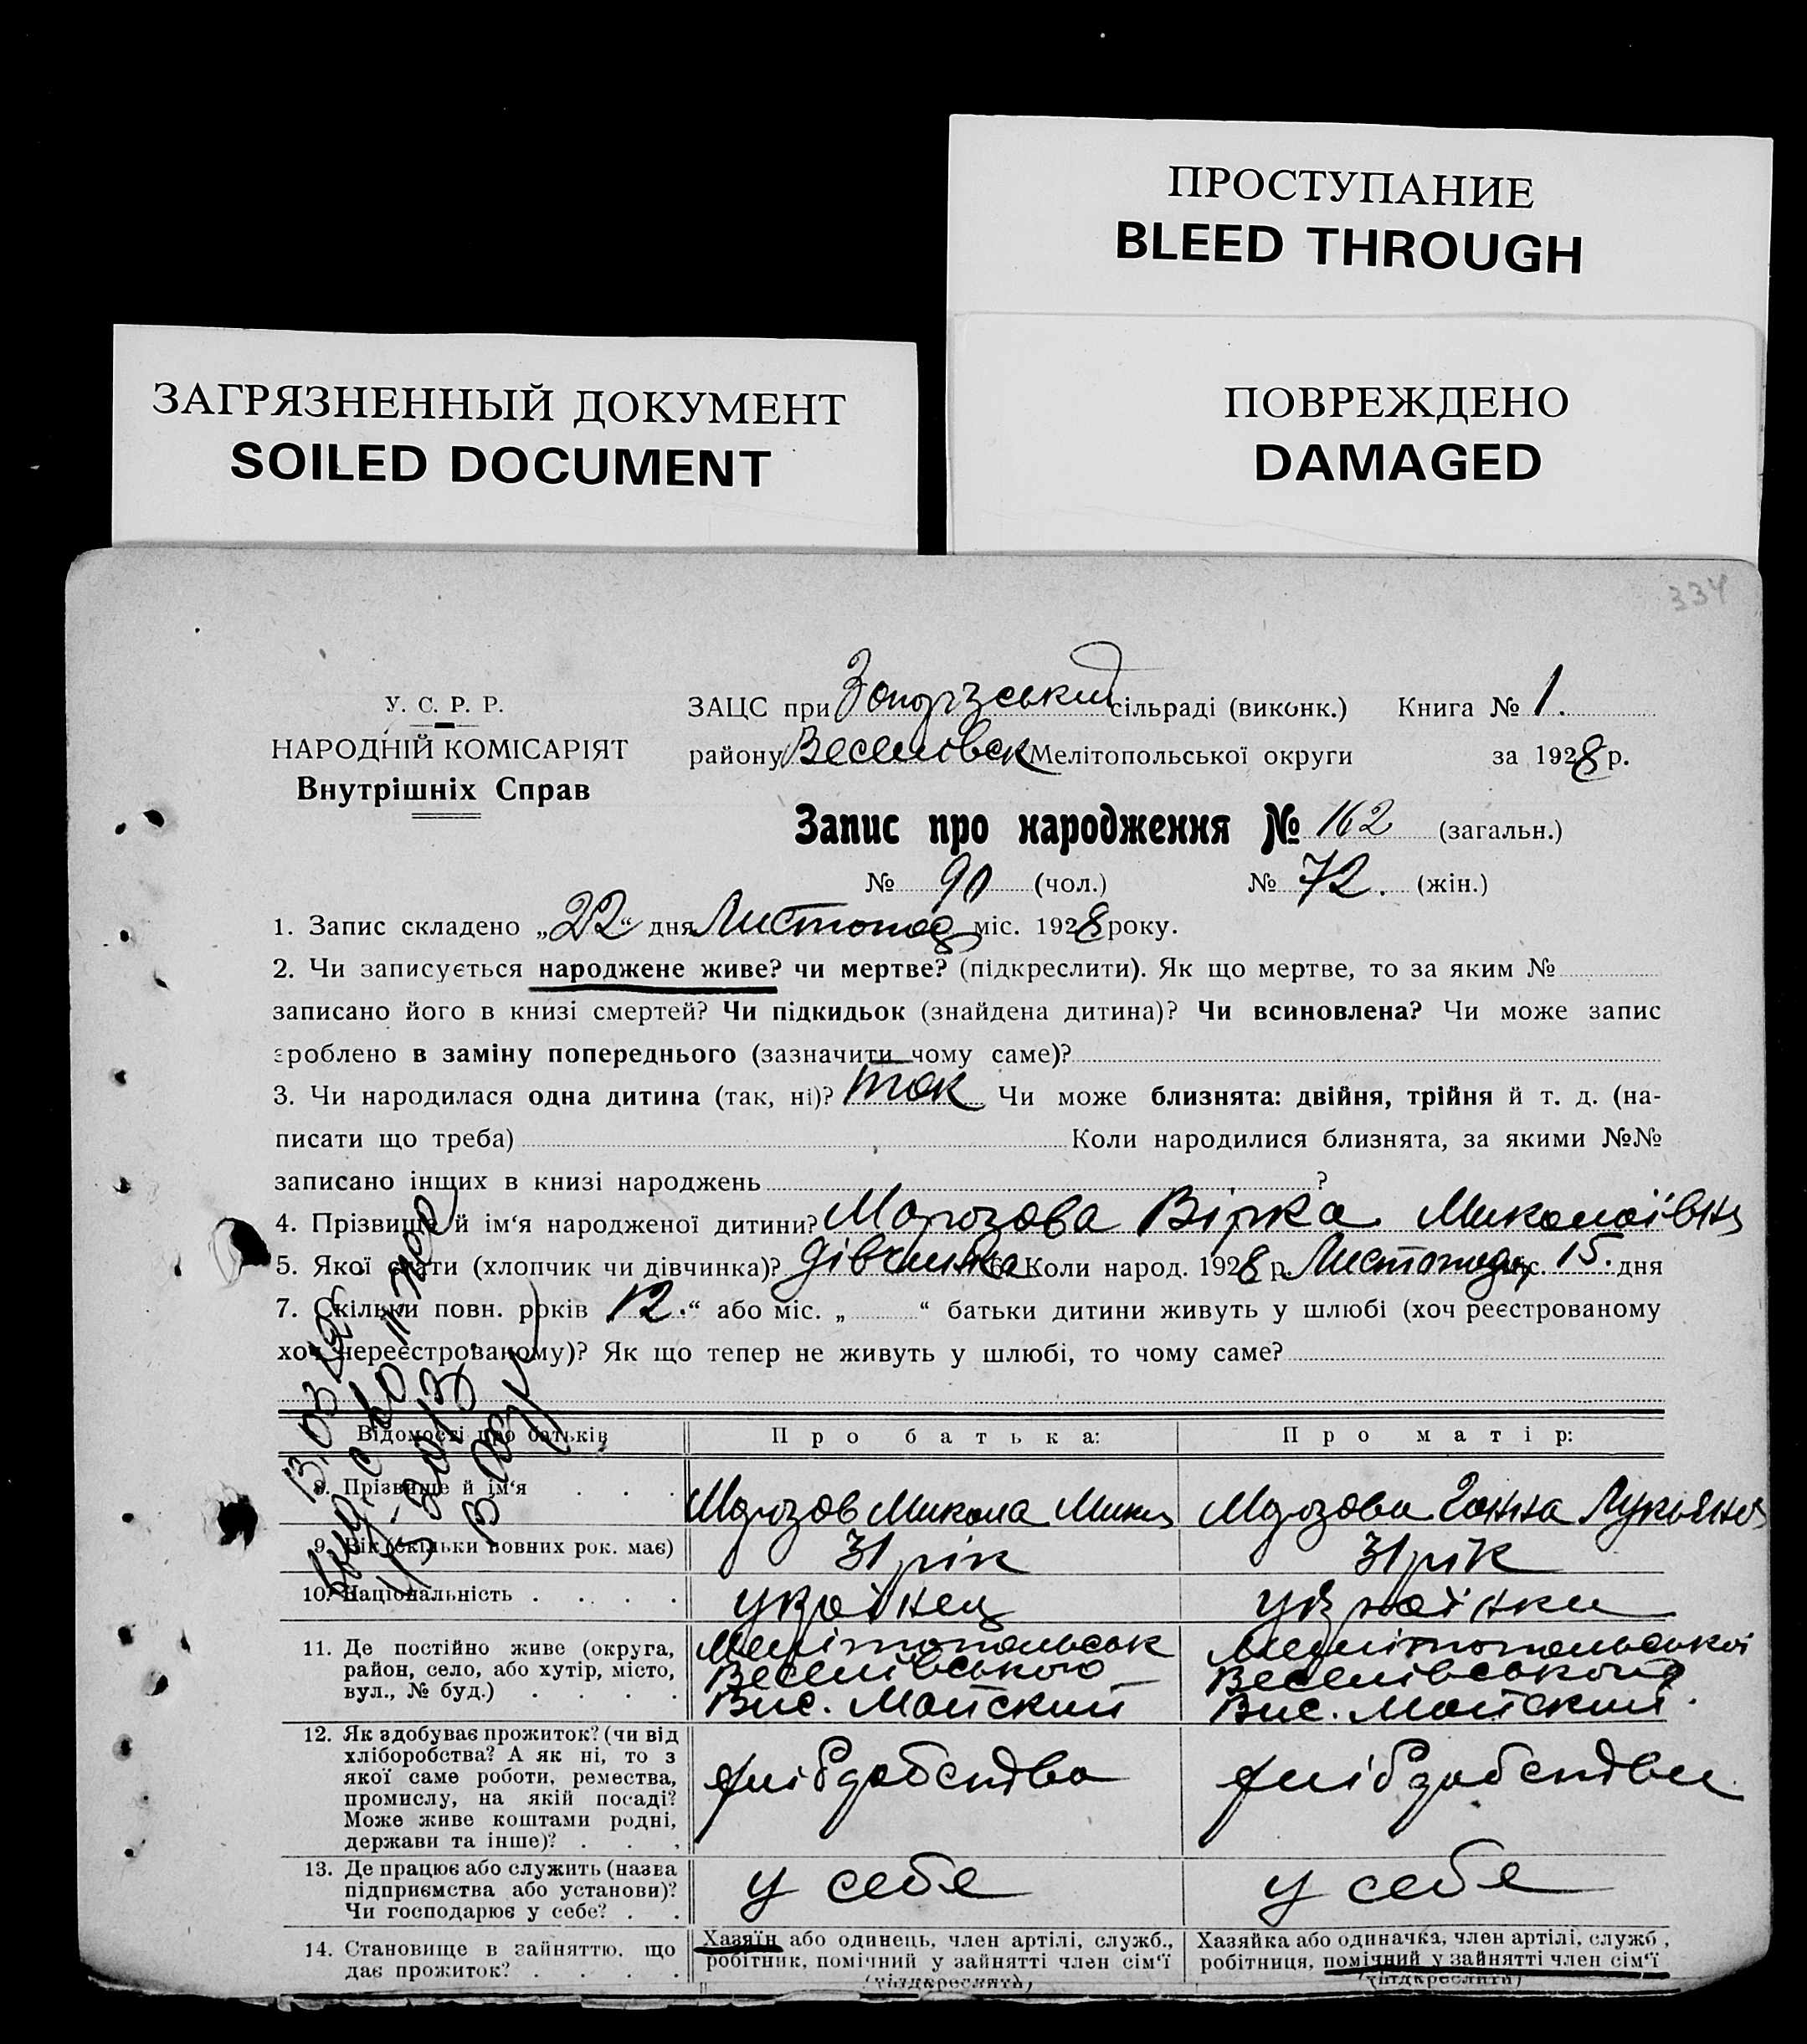 ПРОСТУПАНИЕ
BLEED THROUGH
ЗАГРЯЗНЕННЫЙ ДОКУМЕНТ
SOILED DOCUMENT
ПОВРЕЖДЕНО
DAMAGED
334
У. С. Р. Р.
НАРОДНІЙ КОМІСАРІЯТ
Внутрішніх Справ
ЗАЦС при сільраді (виконк.) Книга № 1.
району Веселівск Мелітопольської округи за 1928 р.
Запис про народження № 162 (загальн.)
№ 90 (чол.) № 72. (жін.)
1. Запис складено „22“ дня Листопад міс. 1928 року.
2. Чи записується народжене живе? чи мертве? (підкреслити). Як що мертве, то за яким №
записано його в книзі смертей? Чи підкидьок (знайдена дитина)? Чи всиновлена? Чи може запис
зроблено в заміну попереднього (зазначити чому саме)?
3. Чи народилася одна дитина (так, ні)? так Чи може близнята: двійня, трійня й т. д. (на-
писати що треба) Коли народилися близнята, за якими №№
записано інших в книзі народжень ?
4. Прізвище й ім‘я народженої дитини? Морозова Вірка Миколаївна
5. Якої стати (хлопчик чи дівчинка)? дівчинка 6. Коли народ. 1928 р. Листопада міс. 15. дня
7. Скільки повн. років „12.“ або міс. „ “ батьки дитини живуть у шлюбі (хоч реєстрованому
хоч нереєстрованому)? Як що тепер не живуть у шлюбі, то чому саме?
Відомості про батьків Про батька: Про матір:
8. Прізвище й ім‘я . . . Морозов Микола Мик Морозова Ганна Лукьянов
9. Вік (скільки повних рок. має) 31 рік 31 рік
10. Національність . . . . українец українки
11. Де постійно живе (округа, Мелітопольськ Мелітопольської
район, село, або хутір, місто, Веселівського Веселівського
вул., № буд.) . . . . Вис. Майский Вис. Майский.
12. Як здобуває прожиток? (чи від
хліборобства? А як ні, то з
якої саме роботи, ремества, хліборобства хліборобства
промислу, на якій посаді?
Може живе коштами родні,
держави та інше)? . . .
13. Де працює або служить (назва
підприємства або установи)? у себе у себе
Чи господарює у себе? . .
14. Становище в зайняттю, що Хазяїн або одинець, член артілі, служб., Хазяйка або одиначка, член артілі, служб,
дає прожиток? . . . . робітник, помічний у зайнятті член сім‘ї робітниця, помічний у зайнятті член сім‘ї
(підкреслити) (підкреслити)